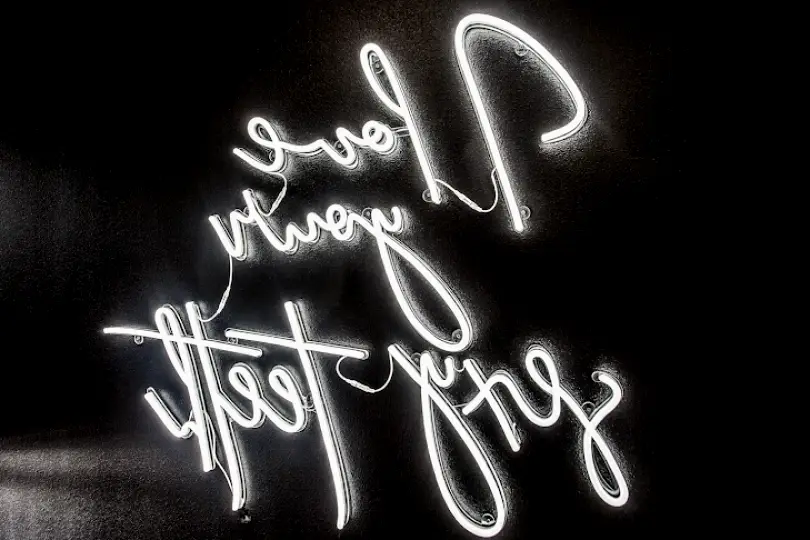 I love
your
sexy Teeth